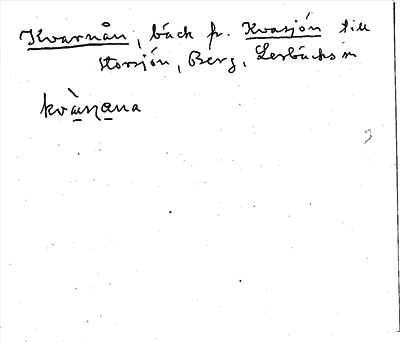 Kvarnån, bäck fr. Kvasjön till
Storsjön, Berg, Lerbäcks sn
kvàɳana